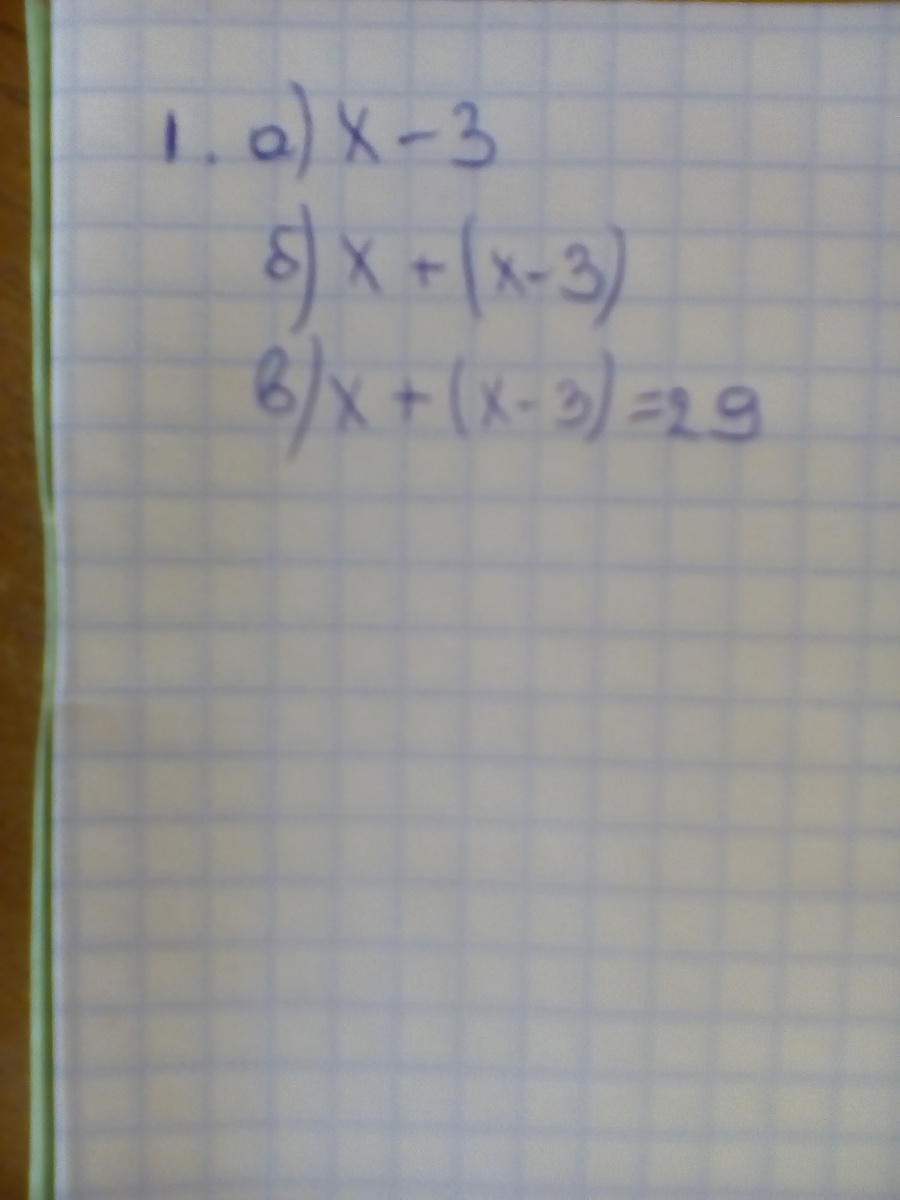 1. а) x - 3
б) x + (x - 3)
в) x + (x - 3) = 29